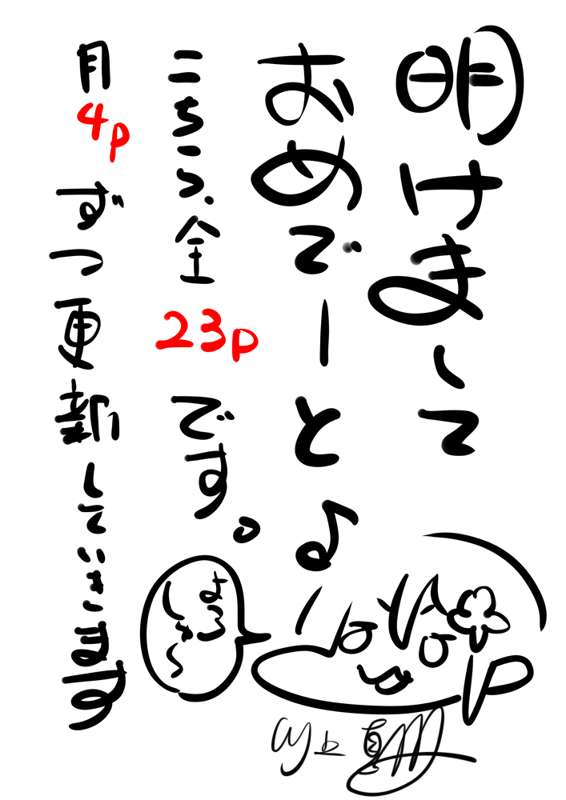 明けまして
おめでーと♪
こちら、全23pです。
月4pずつ更新していきます
よろ
しゃ〜